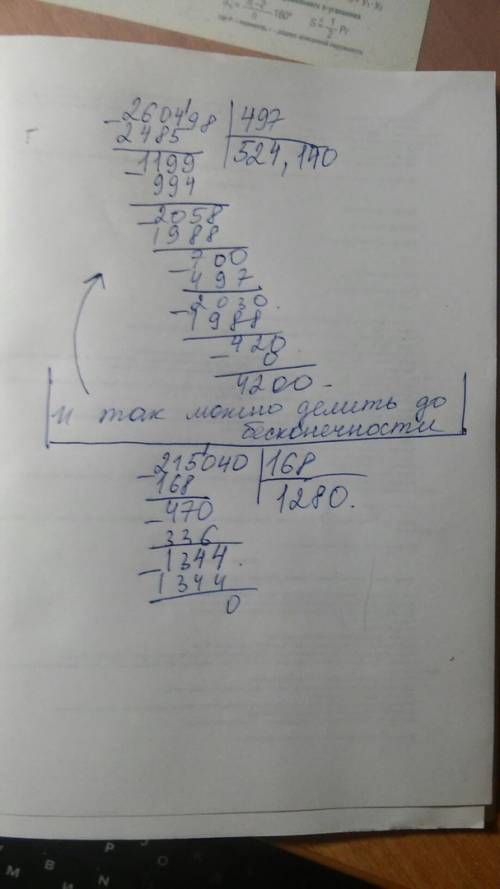 260498 | 497
2485 | 524,140
1199
994
2058
1988
700
497
2030
1988
420
0
4200
И так можно делить до
бесконечности
215040 | 168
168 | 1280.
470
336
1344
1344
0